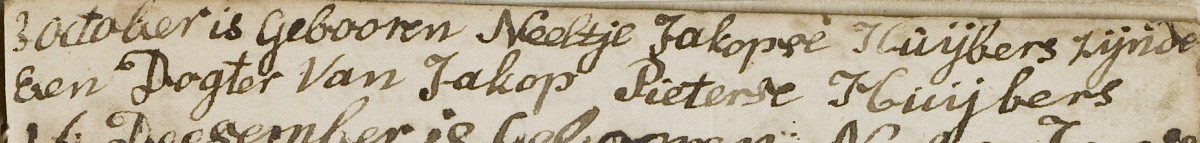 3 october is Gebooren Neeltje Jakopse Huijbers zijnde
Een Dogter Van Jakop Pieterse Huijbers
16 Deesember is Gebooren